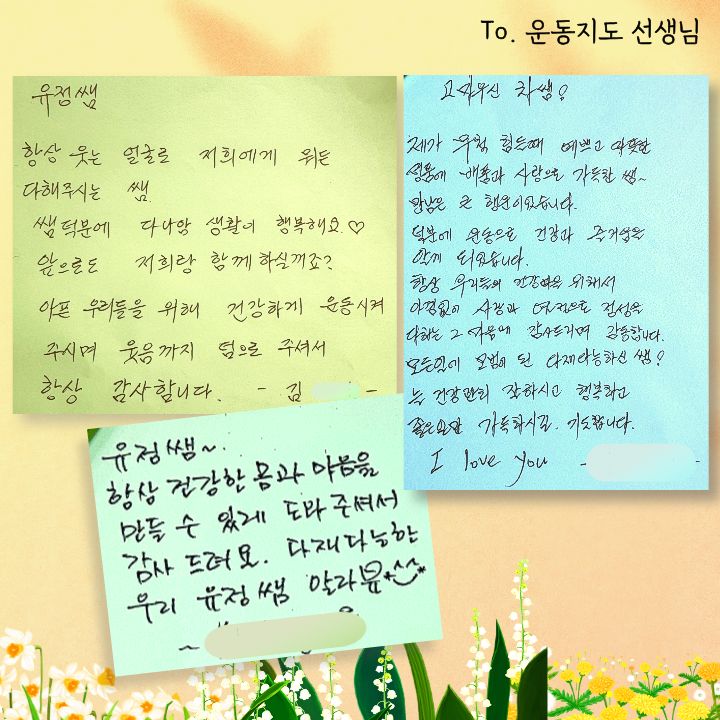 To. 운동지도 선생님
유정쌤
항상 웃는 얼굴로 저희에게 뭐든
다해주시는 쌤.
쌤 덕분에 다나앙 생활이 행복해요♡
앞으로도 저희랑 함께 하실꺼죠?
아픈 우리들을 위해 건강하게 운동시켜
주시며 웃음까지 덤으로 주셔서
항상 감사합니다. - 김 -
고마우신 차쌤!
제가 무척 힘든때 예쁘고 따뜻한
성품에 배품과 사랑으로 가득한 쌤~
만남은 큰 행운이었습니다.
덕분에 운동으로 건강과 즐거움을
알게 되었습니다.
항상 우리들의 건강만을 위해서
아낌없이 사랑과 열정으로 정성을
다하는 그 마음에 감사드리며 감동합니다.
모든일에 모범이 된 다재다능하신 쌤!
늘 건강관리 잘하시고 행복하고
좋은일만 가득하시길 기도합니다.
I love you -
유정쌤~
항상 건강한 몸과 마음을
만들 수 있게 도와주셔서
감사 드려요. 다재다능한
우리 유정쌤 알라뷰*^^*
~